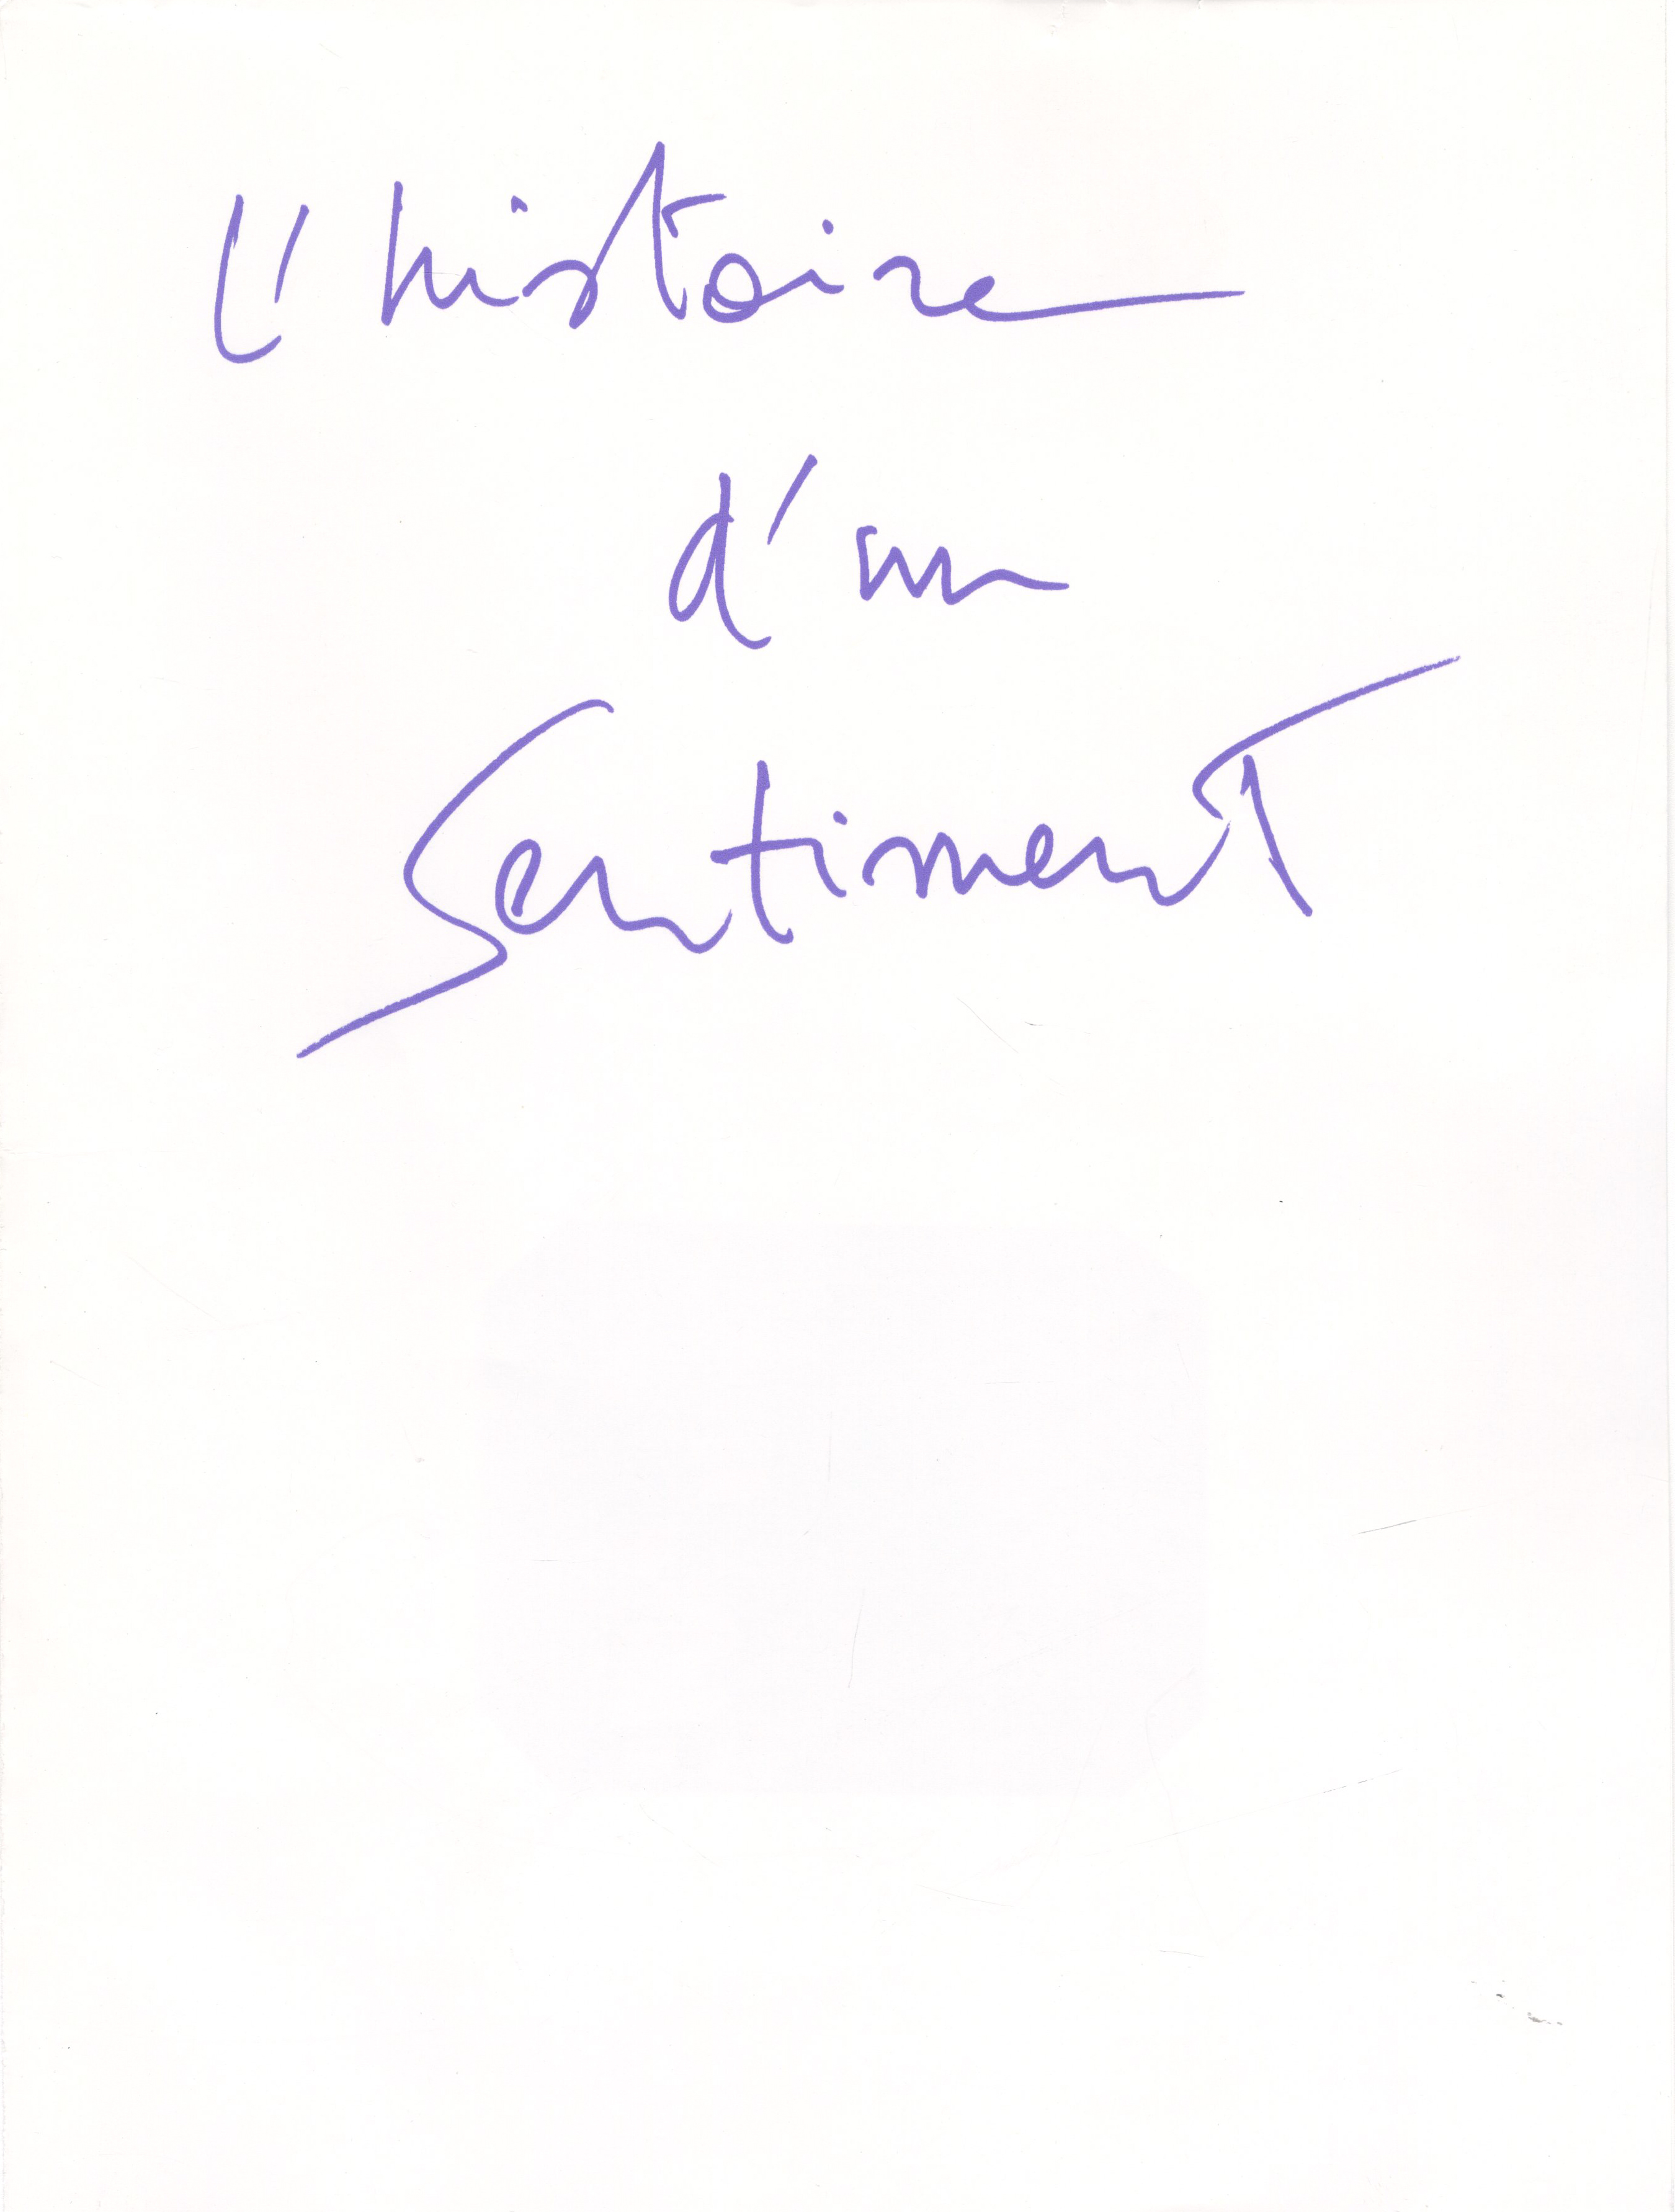 L'histoire
d'un
Sentiment